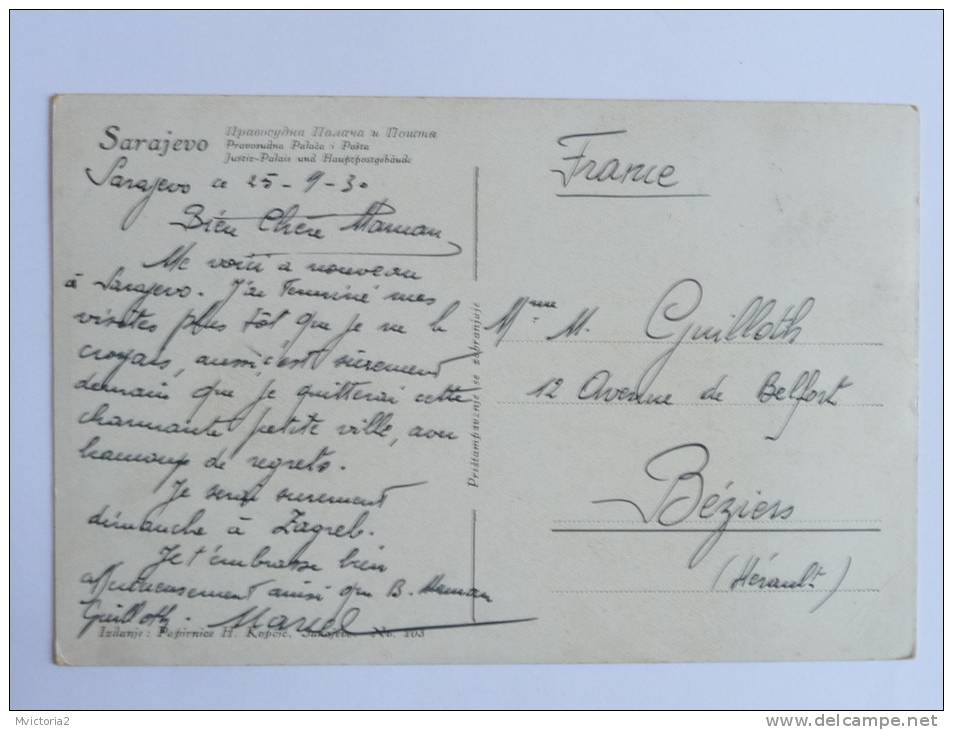 Sarajevo
Правосудна Палача и Пошта
Pravosudna Palača i Pošta
Justiz-Palais und Hauptpostgebäude
Sarajevo ce 25-9-30
Bien Chère Maman,
Me voici a nouveau
à Sarajevo. J'ai Terminé mes
visites plus tôt que je ne le
croyais, aussi, c'est surement
demain que je quitterai cette
charmante petite ville, avec
beaucoup de regrets.
Je serai surement
dimanche à Zagreb.
Je t'embrasse bien
affectueusement ainsi que B. Maman
Guilloth. Marcel
Izdanje: Papirnica H. Kopčić, Sarajevo No. 103
Preštampavanje se zabranjuje
France
Mme M. Guilloth
12 Avenue de Belfort
Béziers
(Hérault)
Mvictoria2
www.delcampe.net